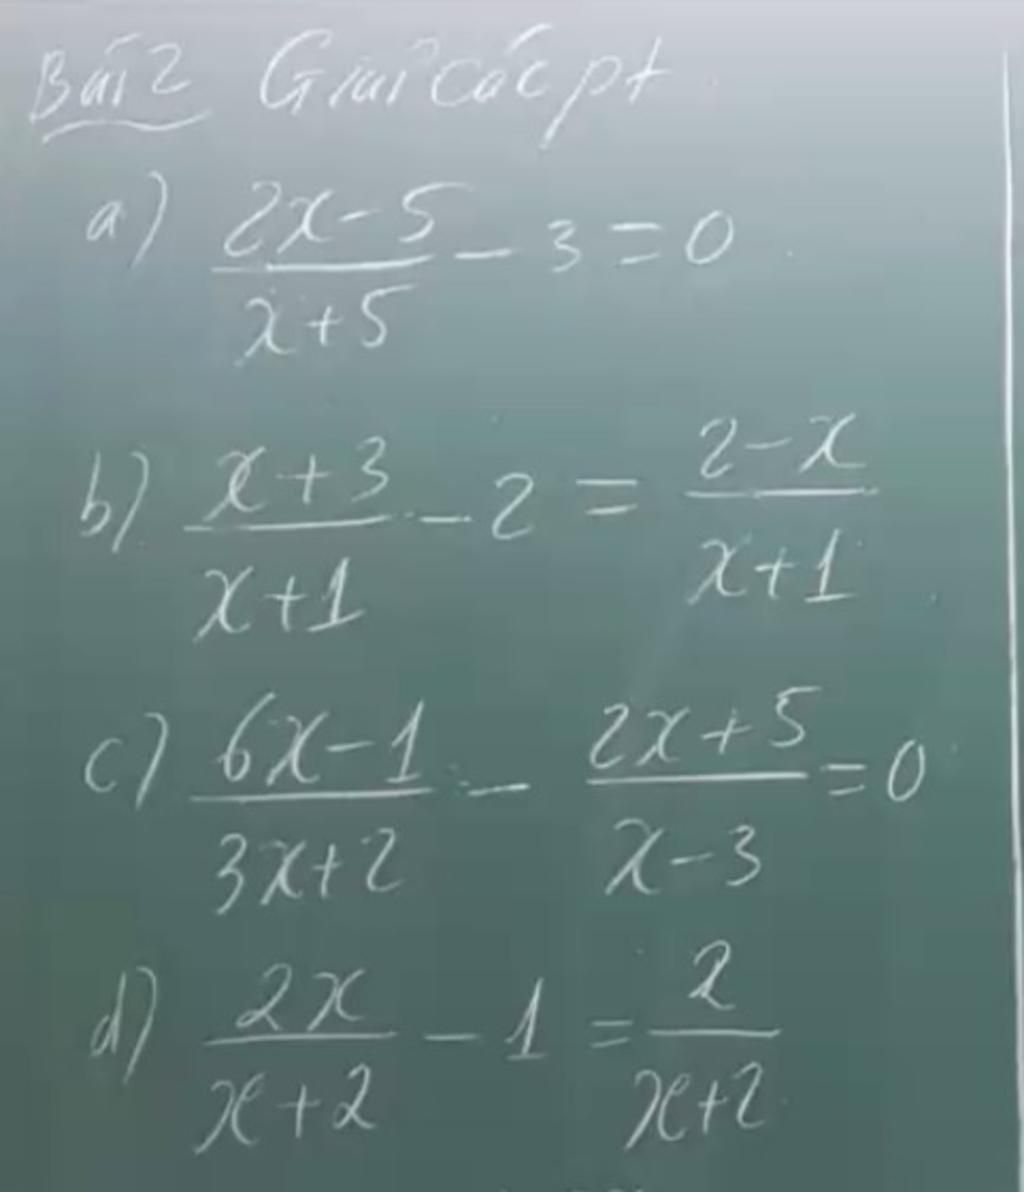 Bài 2 Giải các pt
a) \frac{2x-5}{x+5} - 3 = 0
b) \frac{x+3}{x+1} - 2 = \frac{2-x}{x+1}
c) \frac{6x-1}{3x+2} - \frac{2x+5}{x-3} = 0
d) \frac{2x}{x+2} - 1 = \frac{2}{x+2}